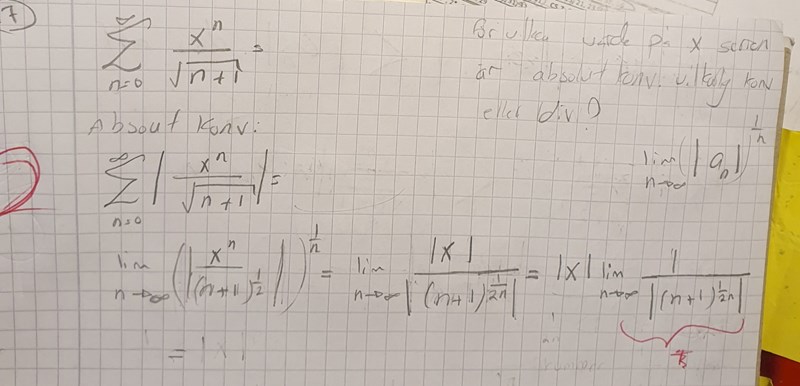 7
\sum_{n=0}^{\infty} \frac{x^n}{\sqrt{n+1}} =
För vilka värde på x serien
är absolut konv. vilkorly konv
eller div?
Absout Konv:
\lim_{n \to \infty} (|a_n|)^{\frac{1}{n}}
\sum_{n=0}^{\infty} \left| \frac{x^n}{\sqrt{n+1}} \right| =
\lim_{n \to \infty} \left( \left| \frac{x^n}{(n+1)^{\frac{1}{2}}} \right| \right)^{\frac{1}{n}} = \lim_{n \to \infty} \frac{|x|}{|(n+1)^{\frac{1}{2n}}|} = |x| \lim_{n \to \infty} \frac{1}{|(n+1)^{\frac{1}{2n}}|}
= |x|